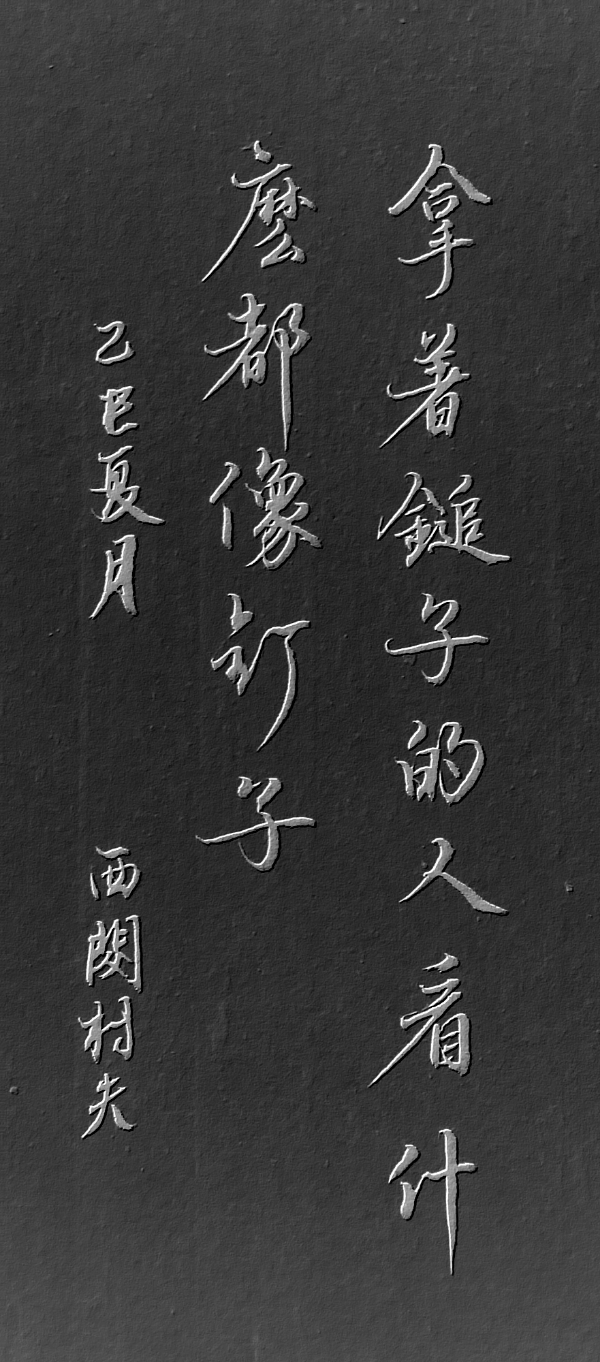 拿著鎚子的人看什
麼都像釘子
乙巳夏月
西関村夫